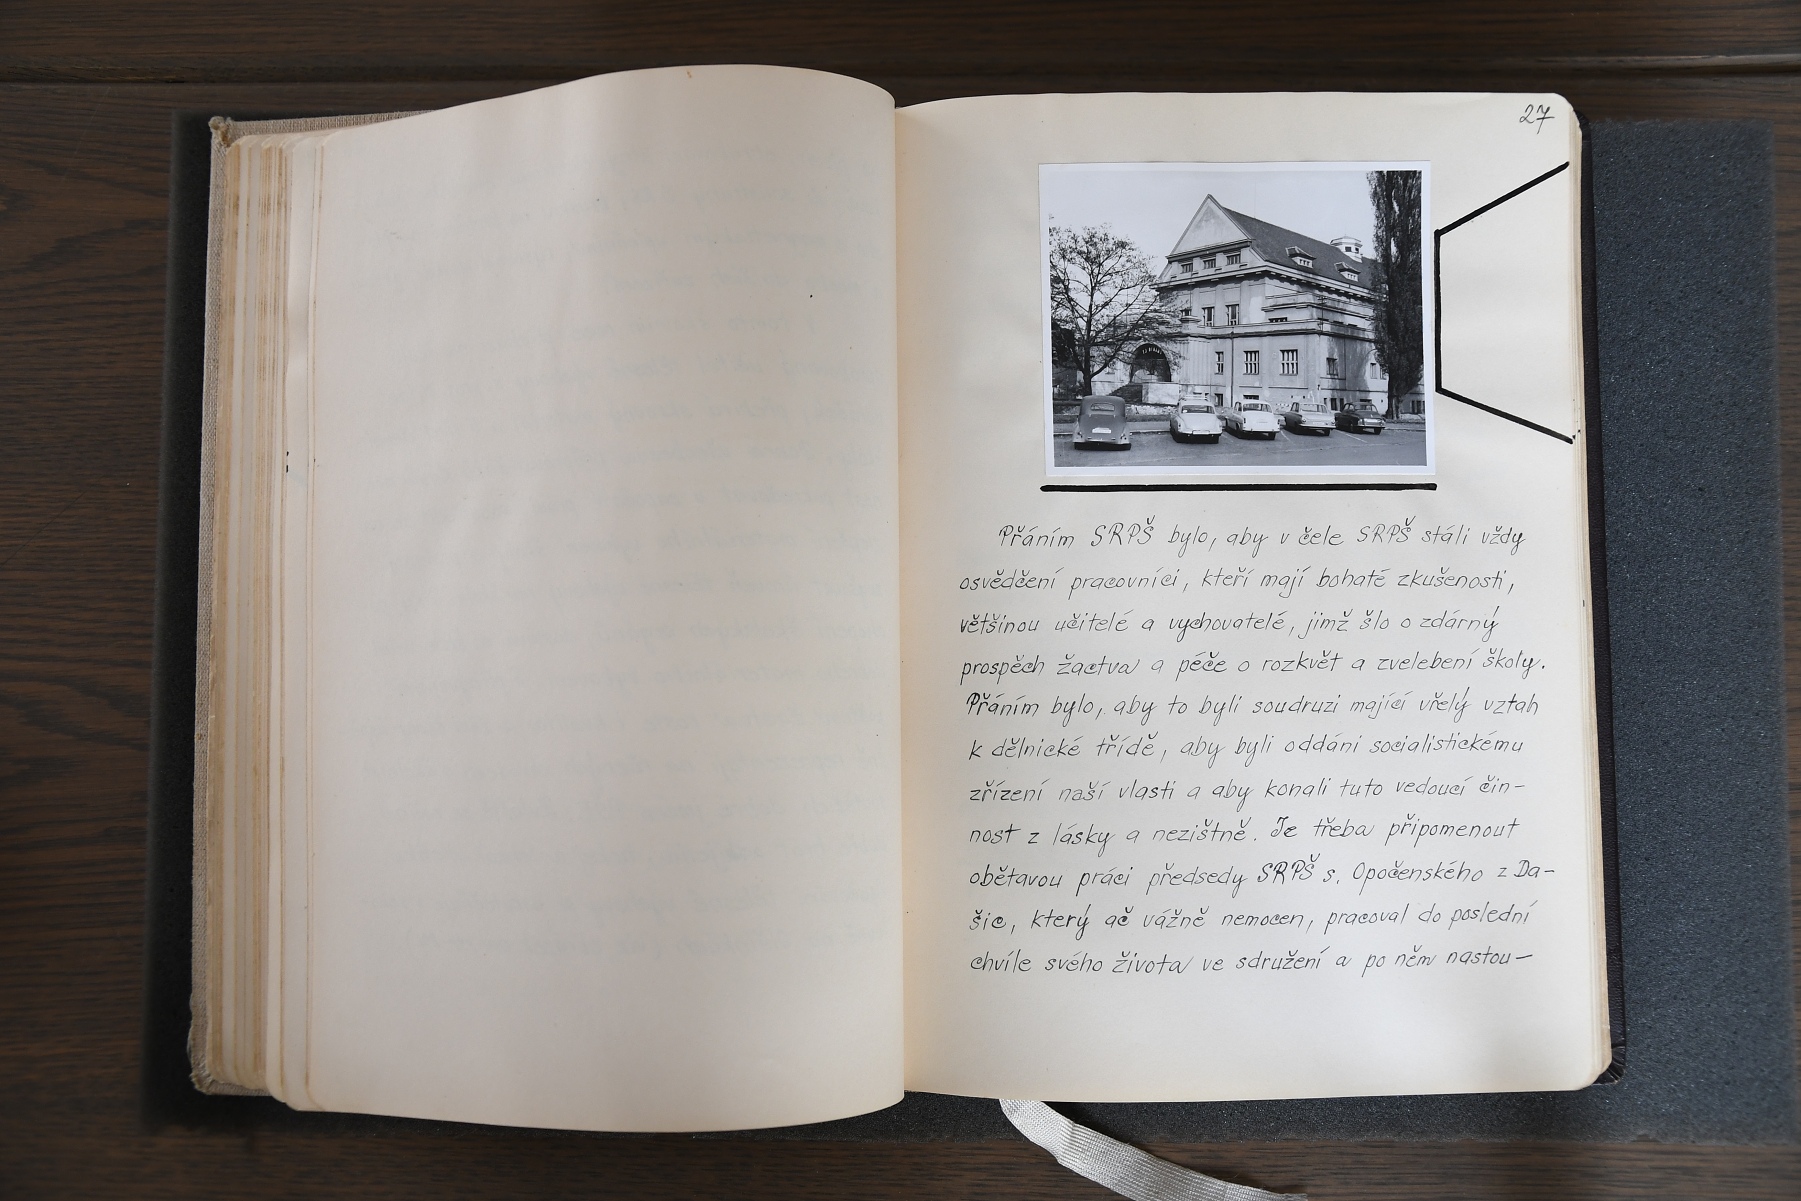 27
Přáním SRPŠ bylo, aby v čele SRPŠ stáli vždy
osvědčení pracovníci, kteří mají bohaté zkušenosti,
většinou učitelé a vychovatelé, jimž šlo o zdárný
prospěch žactva a péče o rozkvět a zvelebení školy.
Přáním bylo, aby to byli soudruzi mající vřelý vztah
k dělnické třídě, aby byli oddáni socialistickému
zřízení naší vlasti a aby konali tuto vedoucí čin-
nost z lásky a nezištně. Je třeba připomenout
obětavou práci předsedy SRPŠ s. Opočenského z Da-
šic, který ač vážně nemocen, pracoval do poslední
chvíle svého života ve sdružení a po něm nastou-